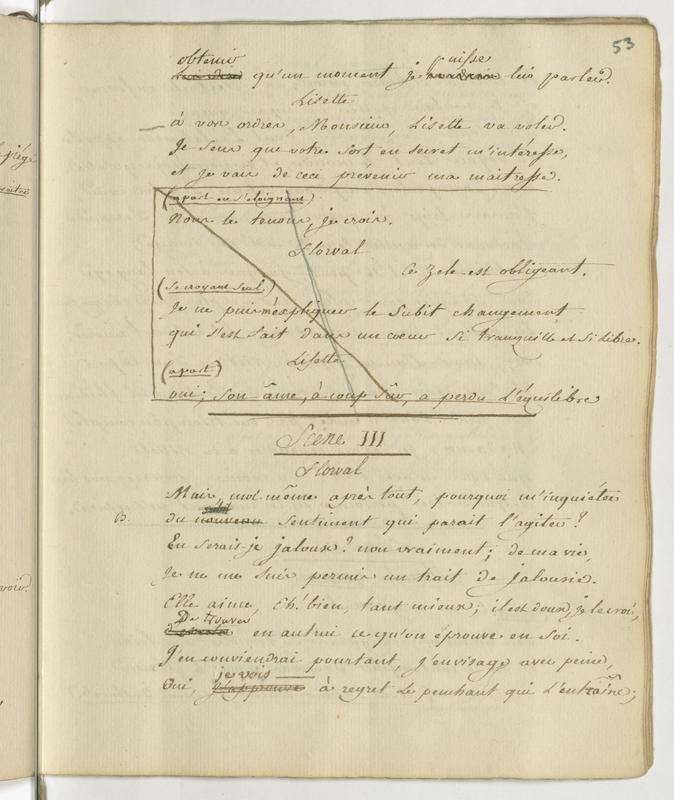 53
obtenir puisse
qu'un moment je lui parler.
Lisette
à vos ordres, Monsieur, Lisette va voler.
Je sens que votre sort en secret m'intéresse,
et je vais de ceci prévenir ma maitresse.
(apart en s'éloignant)
Nous le tenons, je crois.
Florval
Ce zele est obligeant.
(se croyant seul)
Je ne puis m'expliquer le subit changement
qui s'est fait dans un coeur si tranquille et si libre.
Lisette
(apart)
oui; son âme, à coup sûr, a perdu l'équilibre
Scene III
Florval
Mais, moi-même après tout, pourquoi m'inquiéter
subit
B. du nouveau sentiment qui parait l'agiter?
En serais-je jaloux? non vraiment; de ma vie,
Je ne me suis permis un trait de jalousie.
Elle aime, Eh! bien, tant mieux; il est doux, je le croi,
De trouver
en autrui ce qu'on éprouve en soi.
J'en conviendrai pourtant, j'envisage avec peine,
je vois
Oui, j'approuve à regret le penchant qui l'entraîne;